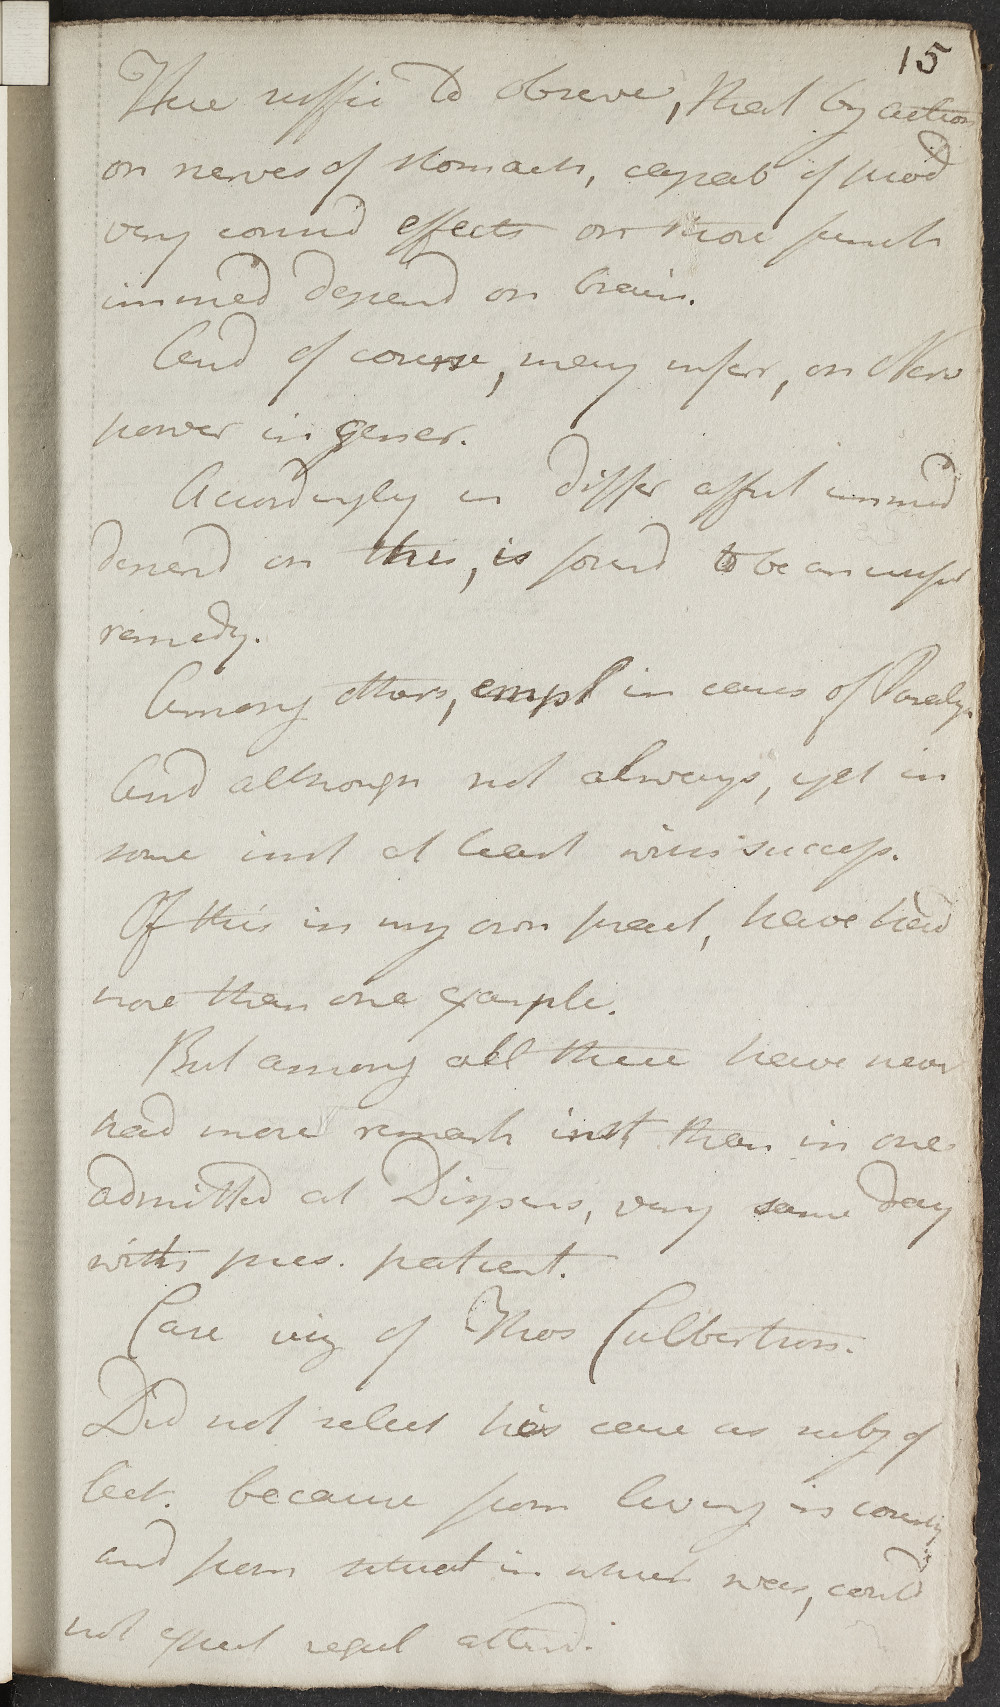 15
Here suffic to observe, that by action
on nerves of stomach, capab of prod
very consid effects on those funct
immed depend on brain.
And of course, may infer, on Nerv
power in gener.
Accordingly in differ affect immed
depend on this, is found to be an usef
remedy.
Among others, empl in cases of Paralys
And although not always, yet in
some inst at least with success.
Of this in my own pract, have had
more than one example.
But among all these have never
had more remark inst than in one
admitted at Dispens, very same day
with pres. patient.
Case viz of Thos Culbertson.
Did not select his case as subj of
lect. because from living in country
and from situat in which was, could
not expect regul attend.